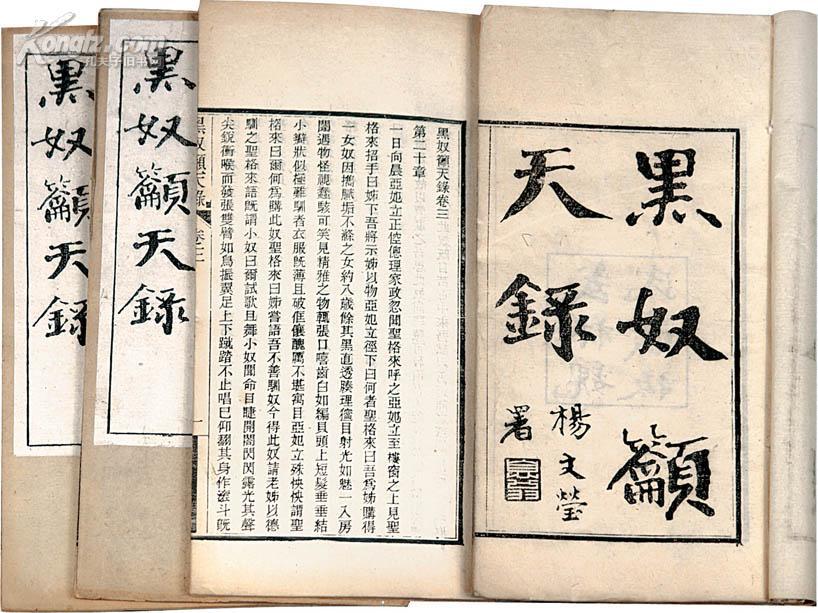 Kongfz.com
孔夫子旧书网
黑奴籲天錄
黑奴籲天錄
黑奴籲
天錄
楊文瑩
署
黑奴籲天錄卷三
第二十章
一日向晨亞妃立正倥傯理家政忽聞聖格來呼之亞妃立至樓窗之上見聖
格來招手曰姊下吾將示姊以物亞妃立徑下曰何者聖格來曰吾爲姊購得
一女奴因攜膩垢不滌之女約八歲餘其黑直透腠理獪目射光如魅一入房
闥遇物怪視蠢駭可笑見精雅之物輒張口嘻齒白如編貝頭上短髮垂垂結
小辮狀似極難馴者衣服既薄且破傴儴醜厲不堪寓目亞妃立殊怏怏謂聖
格來曰爾何爲購此奴聖格來曰姊嘗語吾不善馴奴今得此奴請老姊以德
馴之聖格來語既謂小奴曰爾試歌且舞小奴聞命目睫開闔閃閃露光其聲
尖銳衝喉而發張雙臂如鳥振翼足上下蹴踏不止唱已仰翻其身作滾斗既
黑奴籲天錄
卷三
一